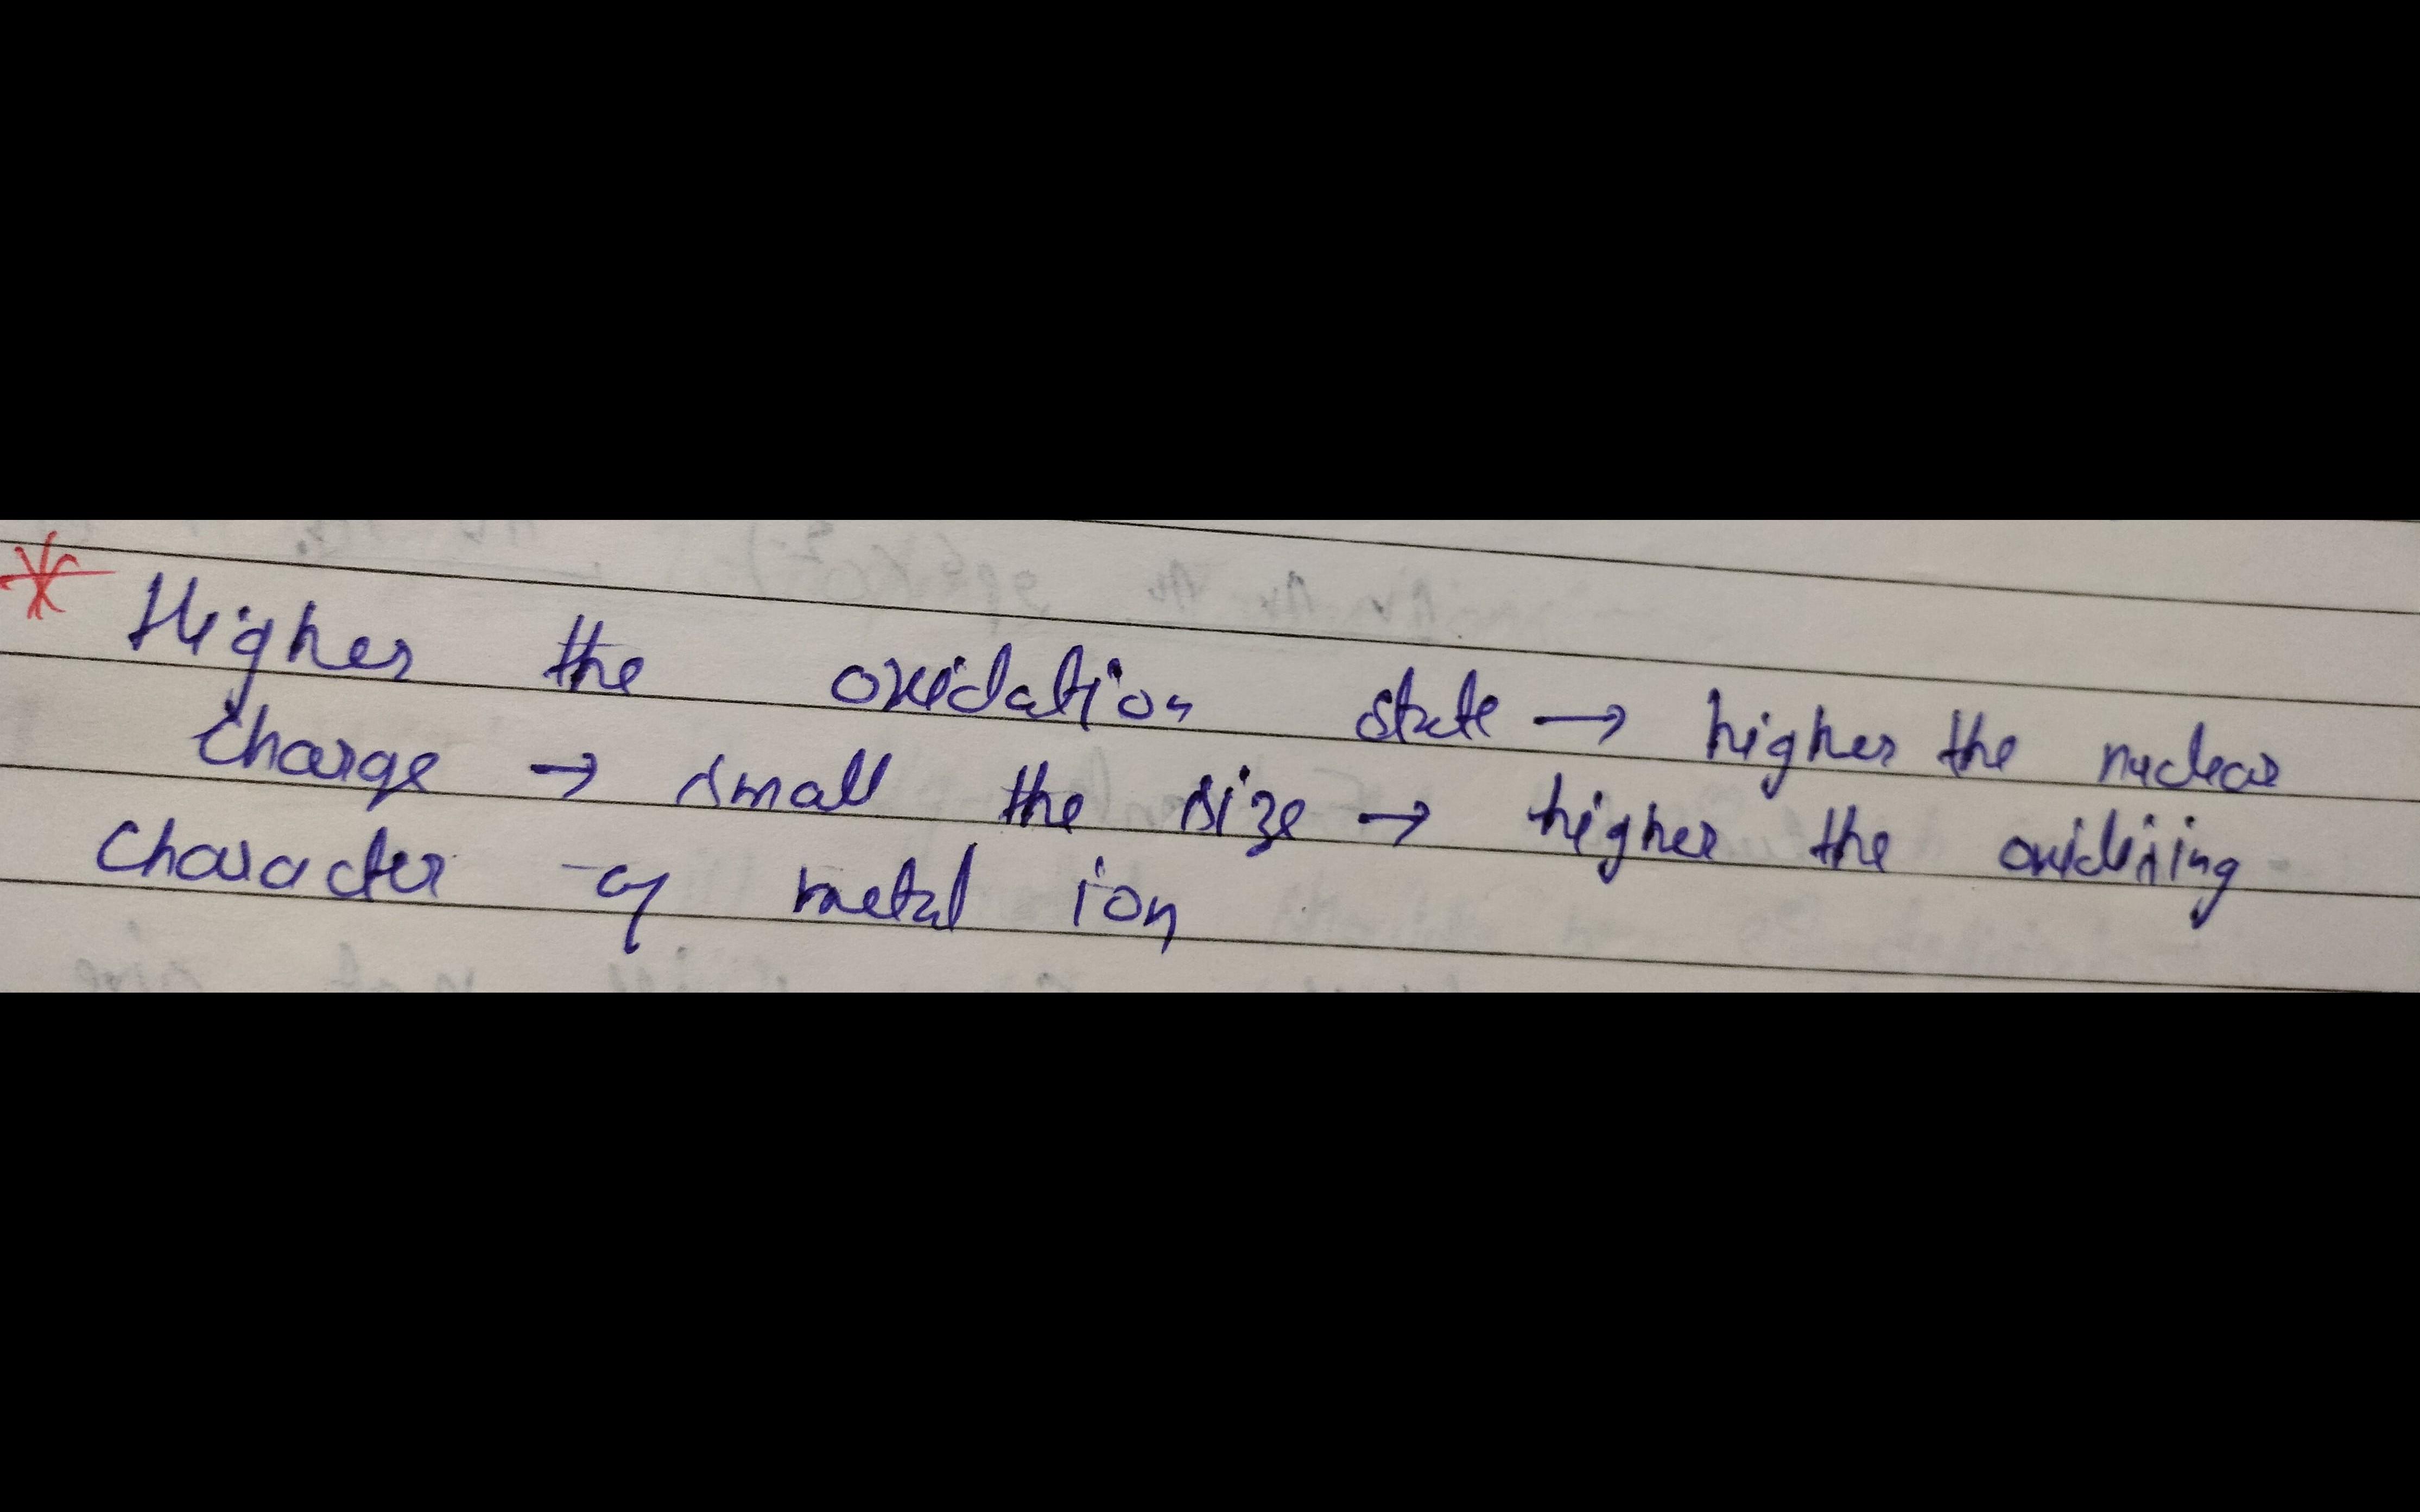 * Higher the oxidation state → higher the nuclear
charge → small the size → higher the oxidizing
character of metal ion